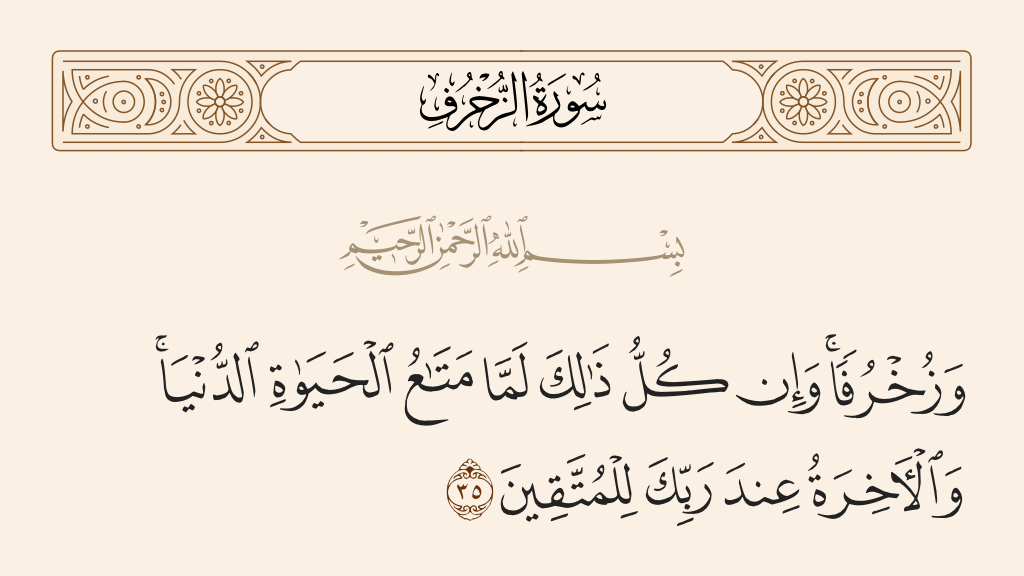 سُورَةُ الزُّخْرُفِ
بِسْمِ ٱللَّهِ ٱلرَّحْمَٰنِ ٱلرَّحِيمِ
وَزُخْرُفًا ۚ وَإِن كُلُّ ذَٰلِكَ لَمَّا مَتَـٰعُ ٱلْحَيَوٰةِ ٱلدُّنْيَا ۚ
وَٱلْـَٔاخِرَةُ عِندَ رَبِّكَ لِلْمُتَّقِينَ ٣٥